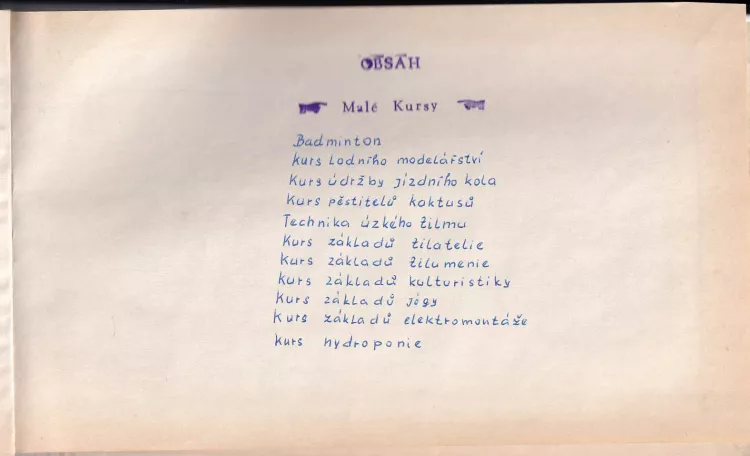 OBSAH
Malé Kursy
Badminton
Kurs Lodního modelářství
Kurs údržby jízdního kola
Kurs pěstitelů kaktusů
Technika úzkého filmu
Kurs základů filatelie
Kurs základů filumenie
Kurs základů kulturistiky
Kurs základů jógy
Kurs základů elektromontáže
Kurs hydroponie